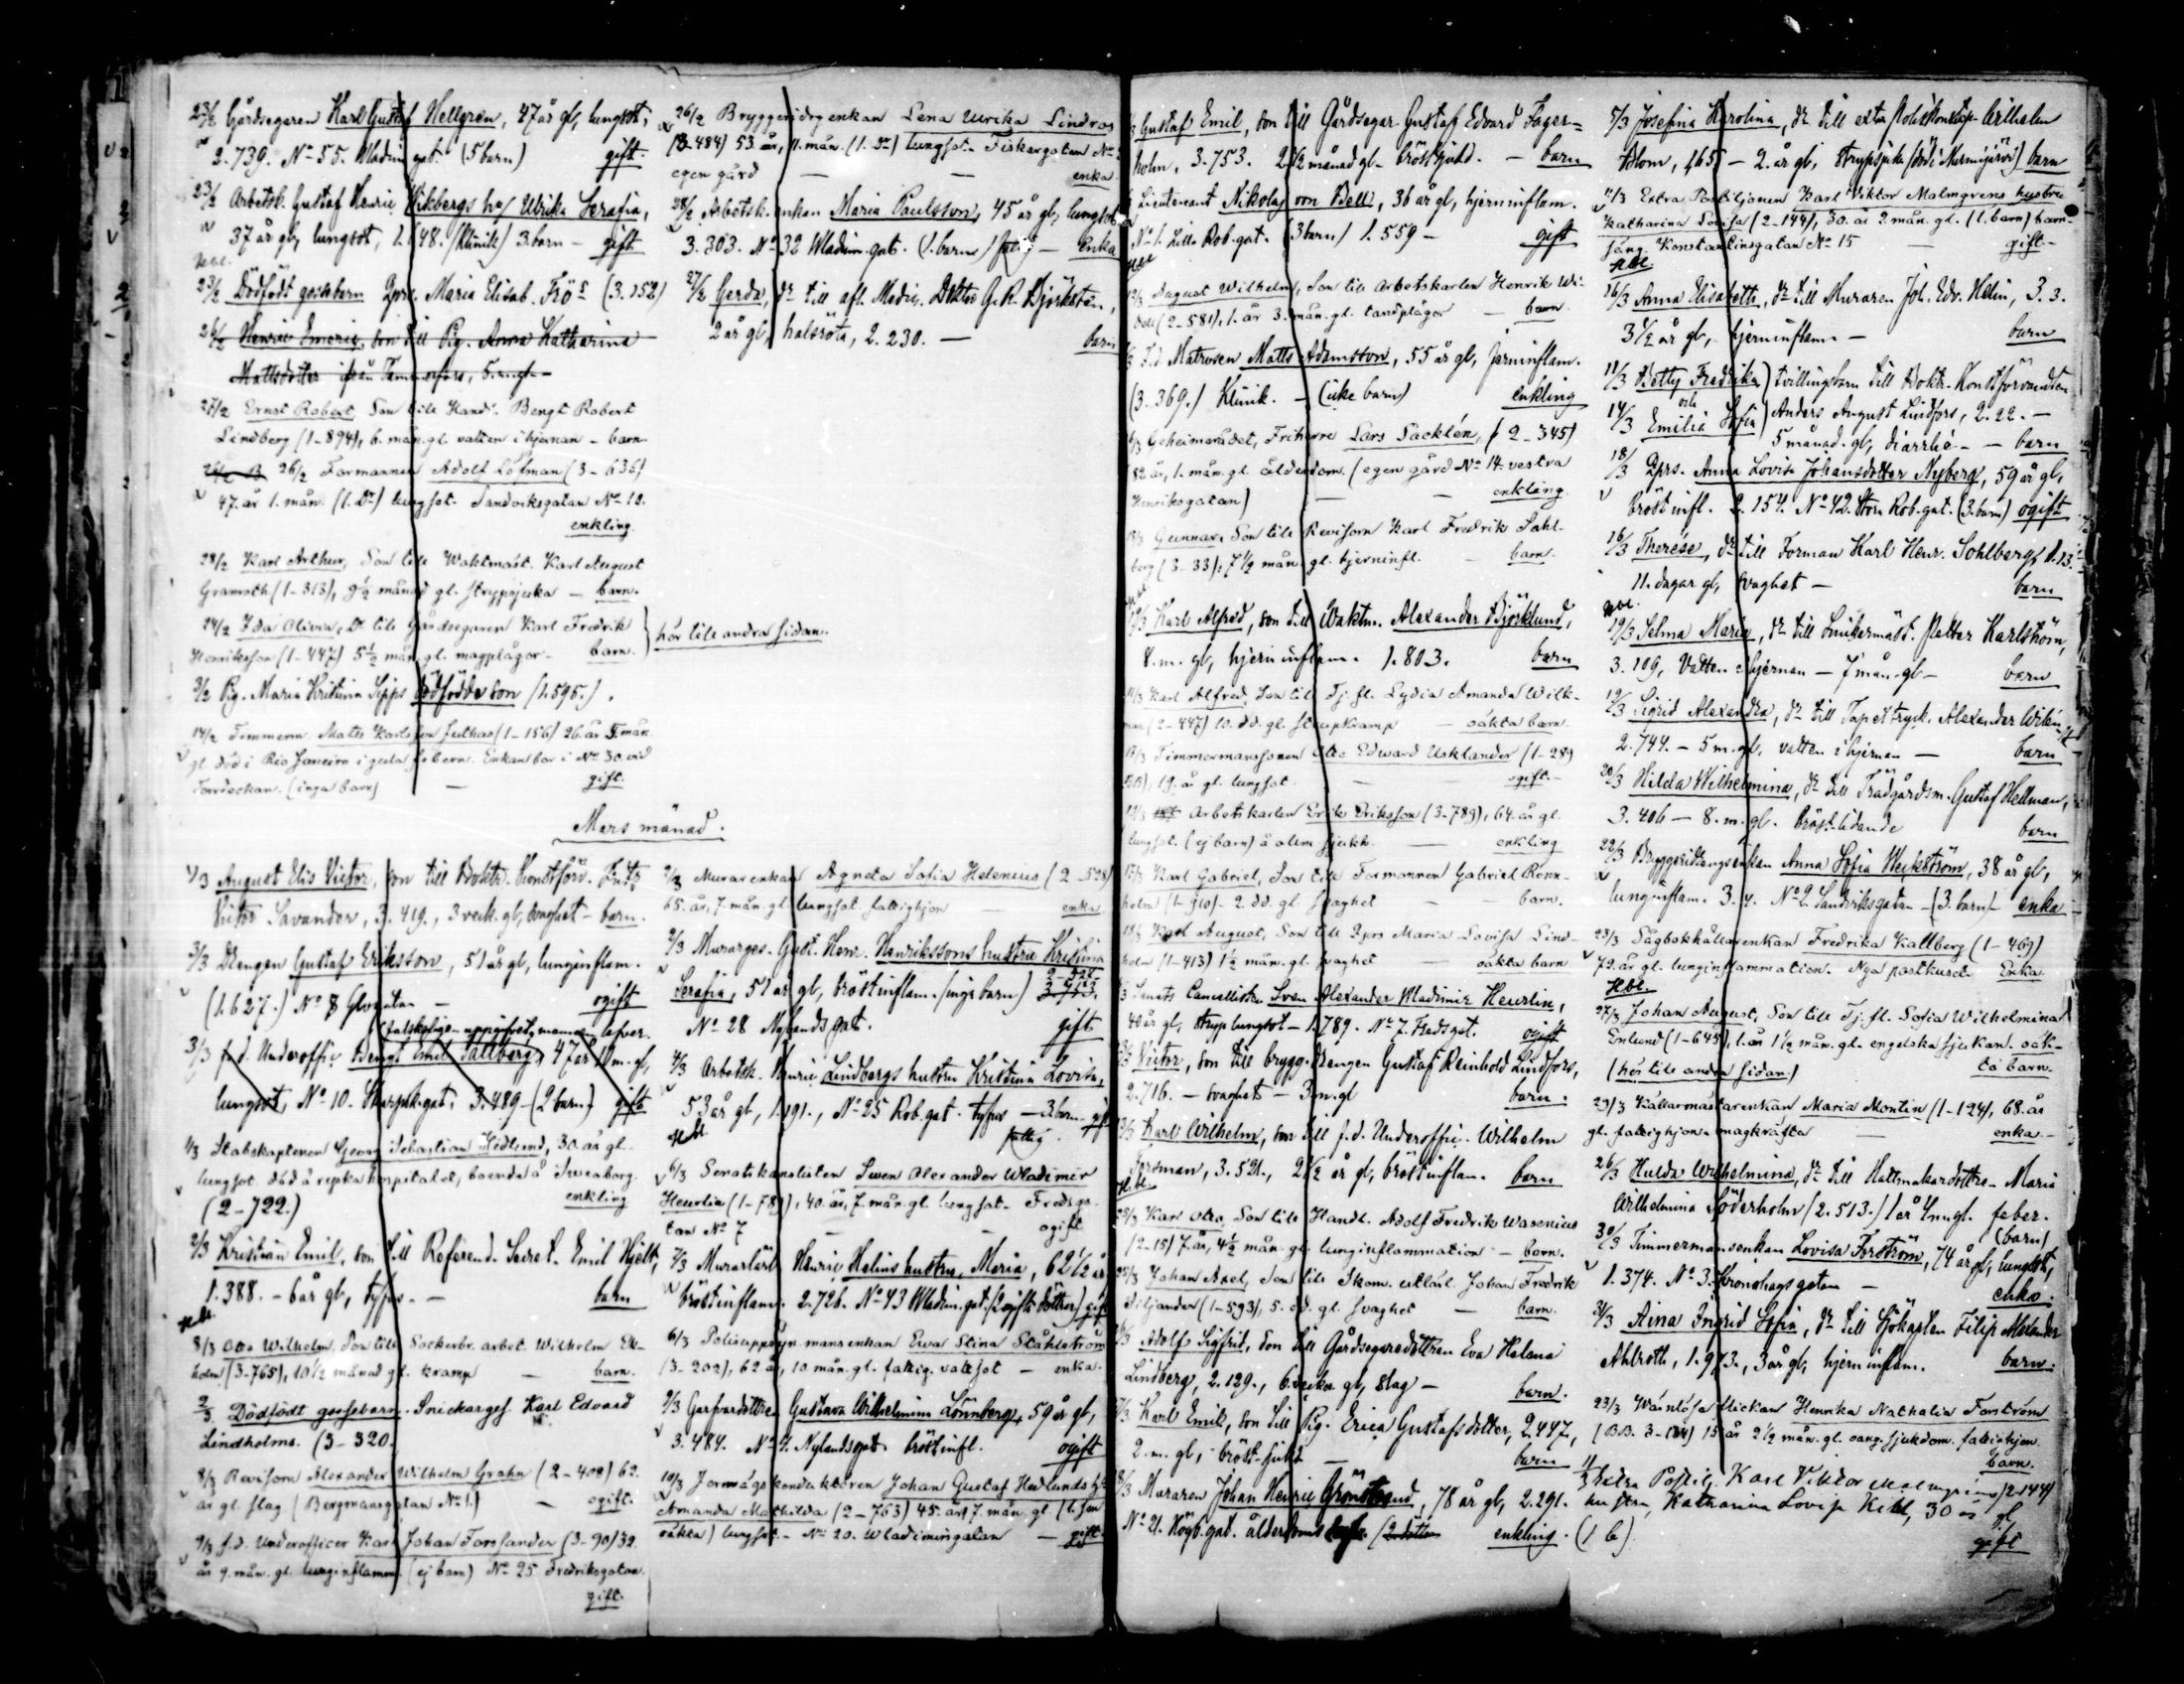 23/2 Gårdsegaren Karl Gustaf Hellgren, 47 år gl, lungsot,
2.739. No 55. Wladim. gat. (5 barn) gift.
23/2 Arbetsk. Gustaf Henric Wikbergs hu Ulrika Serafia,
37 år gl, lungsot, 1.148. (Klinik) 3. barn - gift
23/2 Dödfödt gossebarn Qprs. Maria Elisab. Frös (3.152)
24/2 Henric Emeric son till Pig. Anna Katharina
Mattsdotter ifrån Tammerfors,
27/2 Ernst Robert, Son till Handl. Bengt Robert
Lindberg (1-894), 6. mån. gl. vatten i hjernan - barn.
26/2 Formannen Adolf Löfman (3-636)
47. år 1. mån. (1. Dr) lungsot. Sandviksgatan No 12.
enkling.
28/2 Karl Arthur, Son till Waktmäst. Karl August
Granroth (1-313), 9 1/2 månad gl. strypsjuka - barn.
24/2 Ida Olivia, Dr till Gårdsegaren Karl Fredrik
Henriksson (1-447) 5 1/2 mån. gl. magplågor - barn.
hör till andra sidan.
3/2 Pig. Maria Kristina Sipps dödfödde son (1.595.).
14/2 Timmerm. Matts Karlsson Juthas (1-156) 26. år 5. mån.
gl. död i Rio Janeiro i gula febern. Enkan bor i No 30. vid
Torrdockan. (inga barn) - gift.
26/2 Bryggeridrgenkan Lena Ulrika Lindroos
(3-484) 53. år, 11. mån. (1. Dr) lungsot. Fiskargatan No
egen gård - - enka.
28/2 Arbetsk. enkan Maria Paulsson, 45 år gl, lungsot
3.303. No 32 Wladim. gat. (1. barn) fattig - Enka
27/2 Gerda, dr till afl. Medic. Doktor G. R. Björkstén,
2 år gl, halsröta, 2.230. - barn
Mars månad.
1/3 August Elis Victor, son till Boktr. Konstförv. Frits
Victor Savander, 3.419., 3 veck. gl, svaghet - barn.
3/3 Drengen Gustaf Eriksson, 51 år gl, lunginflam.
(1.627.) No 8 Glogatan - ogift
(falskeligen uppgifvet, mannen lefver.
3/3 f.d. Underoffic. Bengt Emil Sällberg, 47 år 10 m. gl,
lungsot, No 10. Skarpsk. gat. 3.489 - (2 barn) gift
1/3 Stabskaptenen Georg Sebastian Hedlund, 30. år gl.
lungsot. död å repka hospitalet, boende å Sweaborg.
(2-722.) enkling
2/3 Kristian Emil, son till Referend. Secret. Emil Hjelt,
1.388. - 6 år gl, tyfus. - barn
8/3 Otto Wilhelm, Son till Sockerbr. arbet. Wilhelm Ek-
holm (3-765), 10 1/2 månad gl. kramp - barn.
2/3. Dödfödt gossebarn. Snickarges. Karl Edvard
Lindholms. (3-320.
8/3 Revisorn Alexander Wilhelm Grahn (2-408) 62.
år gl. slag (Bergmansgatan No 1.) - ogift.
9/3 f.d. Underofficer Karl Johan Forssander (3-90) 32.
år 9. mån. gl. lunginflamm. (ej barn) No 25 Fredriksgatan.
gift.
2/3 Murarenkan Agneta Sofia Helenius (2-528)
65. år, 7. mån. gl. lungsot. fattighjon - enka.
2/3 Murarges. Gust. Henr. Henrikssons hustru Kristina
Serafia, 51 år gl, bröstinflam. (inga barn)
No 28 Nylands gat. gift
4/3 Arbetsk. Henric Lindbergs hustru Kristina Lovisa,
53 år gl, 1.191., No 25 Rob. gat. tyfus - 3. barn gift
fattig.
6/3 Senatskanslisten Swen Alexander Wladimir
Heurlin (1-789), 40. år, 7. mån. gl. lungsot - Fredsga-
tan No 7 - - ogift
7/3 Murarlärl. Henric Helins hustru, Maria, 62 1/2 år
bröstinflam. 2.726. No 43 Wladim. gat. (2 ogifta döttrar) gift
6/3 Polisuppsyn. mansenkan Ewa Stina Ståhlström
(3-202), 62 år, 10 mån. gl. fattig. vattsot - enka.
9/3 Garfvardottren Gustava Wilhelmina Lönnberg, 59 år gl,
3.484. No 4. Nylandsgat. bröstinfl. ogift
10/3 Jernvägskonduktören Johan Gustaf Hedlunds h.
Amanda Mathilda (2-763) 45. år 7. mån. gl. (1. son
oäkta) lungsot - No 20. Wladimirsgatan - gift.
Gustaf Emil, son till Gårdsegar. Gustaf Edvard Fager-
holm, 3.753. 2 1/2 månad gl - bröstsjukd. - barn
Lieutenant Nikolaj von Bell, 36 år gl, hjerninflam.
No 1. Lilla Rob. gat. (3 barn) 1.559 - gift
August Wilhelm, Son till Arbetskarlen Henrik Wi-
(2-581), 1. år 3. mån. gl. tandplågor - barn.
F.d Matrosen Matts Adamsson, 55 år gl, hjerninflam.
(3.369.) Klinik. - (icke barn) enkling
Geheimerådet, Friherre Lars Sacklén, (2-345)
82 år, 1. mån. gl ålderdom. (egen gård No 14. vestra
Henriksgatan) - - enkling.
Gunnar, Son till Revisorn Karl Fredrik Sahl-
berg (3-33), 7 1/2 mån. gl. hjerninfl. - barn.
Karl Alfred, son till Waktm. Alexander Björklund,
8. m. gl, hjerninflam. 1.803. barn
Karl Alfred, Son till Tj. fl. Lydia Amanda Wilk-
man (2-447) 10. dd. gl. strupkramp - oäkta barn.
Timmermanssonen Otto Edward Usklander (1-289
19. år gl. lungsot - - ogift.
Arbetskarlen Erik Eriksson (3-789), 64. år gl.
lungsot. (ej barn) å allm. sjukh. - enkling
Karl Gabriel, Son till Formannen Gabriel Rönn-
holm (1-910) - 2. dd. gl. svaghet - - barn.
Karl August, Son till Qprs Maria Lovisa Lind-
holm (1-413) 1 1/2 mån. gl. svaghet - oäkta barn
Senats Cancellisten Sven Alexander Wladimir Heurlin,
40 år gl, strup lungsot - 1.789. No 7. Fredsgat. ogift
Victor, son till brygg. drengen Gustaf Reinhold Lindfors,
2.716. - svaghet - 3 m. gl barn.
Karl Wilhelm, son till f.d. Underoffic. Wilhelm
Forsman, 3.521., 2 1/2 år gl, bröstinflam. barn
Karl Otto, Son till Handl. Adolf Fredrik Wasenius
(2-15) 7. år, 4 1/2 mån. gl. lunginflammation - barn.
Johan Axel, Son till Skom. utlärl. Johan Fredrik
Siljander (1-593), 5. dd. gl. svaghet - barn.
Adolf Sigfrid, Son till Gårdsegaredottren Eva Helena
Lindberg, 2.129., 6. veckor gl, slag - barn.
Karl Emil, son till Pig. Erica Gustafsdotter, 2.447,
2. m. gl, bröst-sjukd - barn
Muraren Johan Henric Grönstrand, 78 år gl, 2.291.
No 21. Högb. gat. ålderdoms (2 döttrar enkling.
7/3 Josefina Karolina, dr till extra Poliskonstap. Wilhelm
Blom, 1.65 - 2. år gl, strypsjuka (död i Nurmijärvi) barn
11/3 Extra Postiljonen Karl Viktor Malmgrens hustru
Katharina Lovisa (2-144), 30. år 2. mån. gl. (1. barn) barn-
säng. Konstantinsgatan No 15 - gift -
16/3 Anna Elisabeth, dr till Muraren Joh. Edv. Helin, 3.3.
3 1/2 år gl, hjerninflam. - barn
11/3 Betty Fredrika) tvillingbarn till Boktr. Konstförvandten
och
14/3 Emilia Sofia) Anders August Lindfors, 2.22. -
5 månad. gl, diarrhé - - barn
18/3 Qprs. Anna Lovisa Johansdotter Nyberg, 59 år gl,
bröstinfl. 2.154. No 42. Stora Rob. gat. (3. barn) ogift
16/3 Therése, dr till Forman Karl Henr. Sohlberg, 1.13.
11. dagar gl, svaghet - barn
19/3 Selma Maria, dr till Snickermäst. Petter Karlström,
3.109, Vatten i hjernan - 7 mån. gl - barn
19/3 Sigrid Alexandra, dr till Tapettryck. Alexander Wikén
2.744. - 5 m. gl, vatten i hjernan - barn
20/3 Hilda Wilhelmina, dr till Trädgårdsm. Gustaf Hellman,
3.406 - 8. m. gl. bröst-lidande barn
22/3 Bryggeridrengsenkan Anna Sofia Weckström, 38 år gl,
lunginflam. 3.4. No 2. Sandviksgatan - (3. barn) - enka
23/3 Sågbokhållarenkan Fredrika Kallberg (1-469)
72. år gl. lunginflammation. Nya posthuset. Enka.
27/3 Johan August, Son till Tj. fl. Sofia Wilhelmina
Enlund (1-645), 1. år 1 1/2 mån. gl. engelska sjukan. oäk-
(hör till andra sidan.) ta barn.
23/3 Källarmästarenkan Maria Montin (1-124), 68. år
gl. fattighjon. magkräfta - enka. -
26/3 Hulda Wilhelmina, dr till Hattmakardottren Maria
Wilhelmina Söderholm (2.513.) 1 år 4 m. gl. feber.
(barn)
30/3 Timmermansenkan Lovisa Forström, 74 år gl, lungsot,
1.374. No 3. Kronohagsgatan - enka.
31/3 Aina Ingrid Sofia, dr till Sjökapten Filip Alexander
Ahlroth, 1.973., 3 år gl, hjerninflam. barn.
23/3 Wärnlösa flickan Henrika Nathalia Forström
(BB. 3-184) 15 år 2 1/2 mån. gl. oang. sjukdom. fattighjon.
barn.
11/3 Extra Postilj. Karl Viktor Malmgrens (2-144)
hustru, Katharina Lovisa Kihl, 30 år gl
(1 b). gift